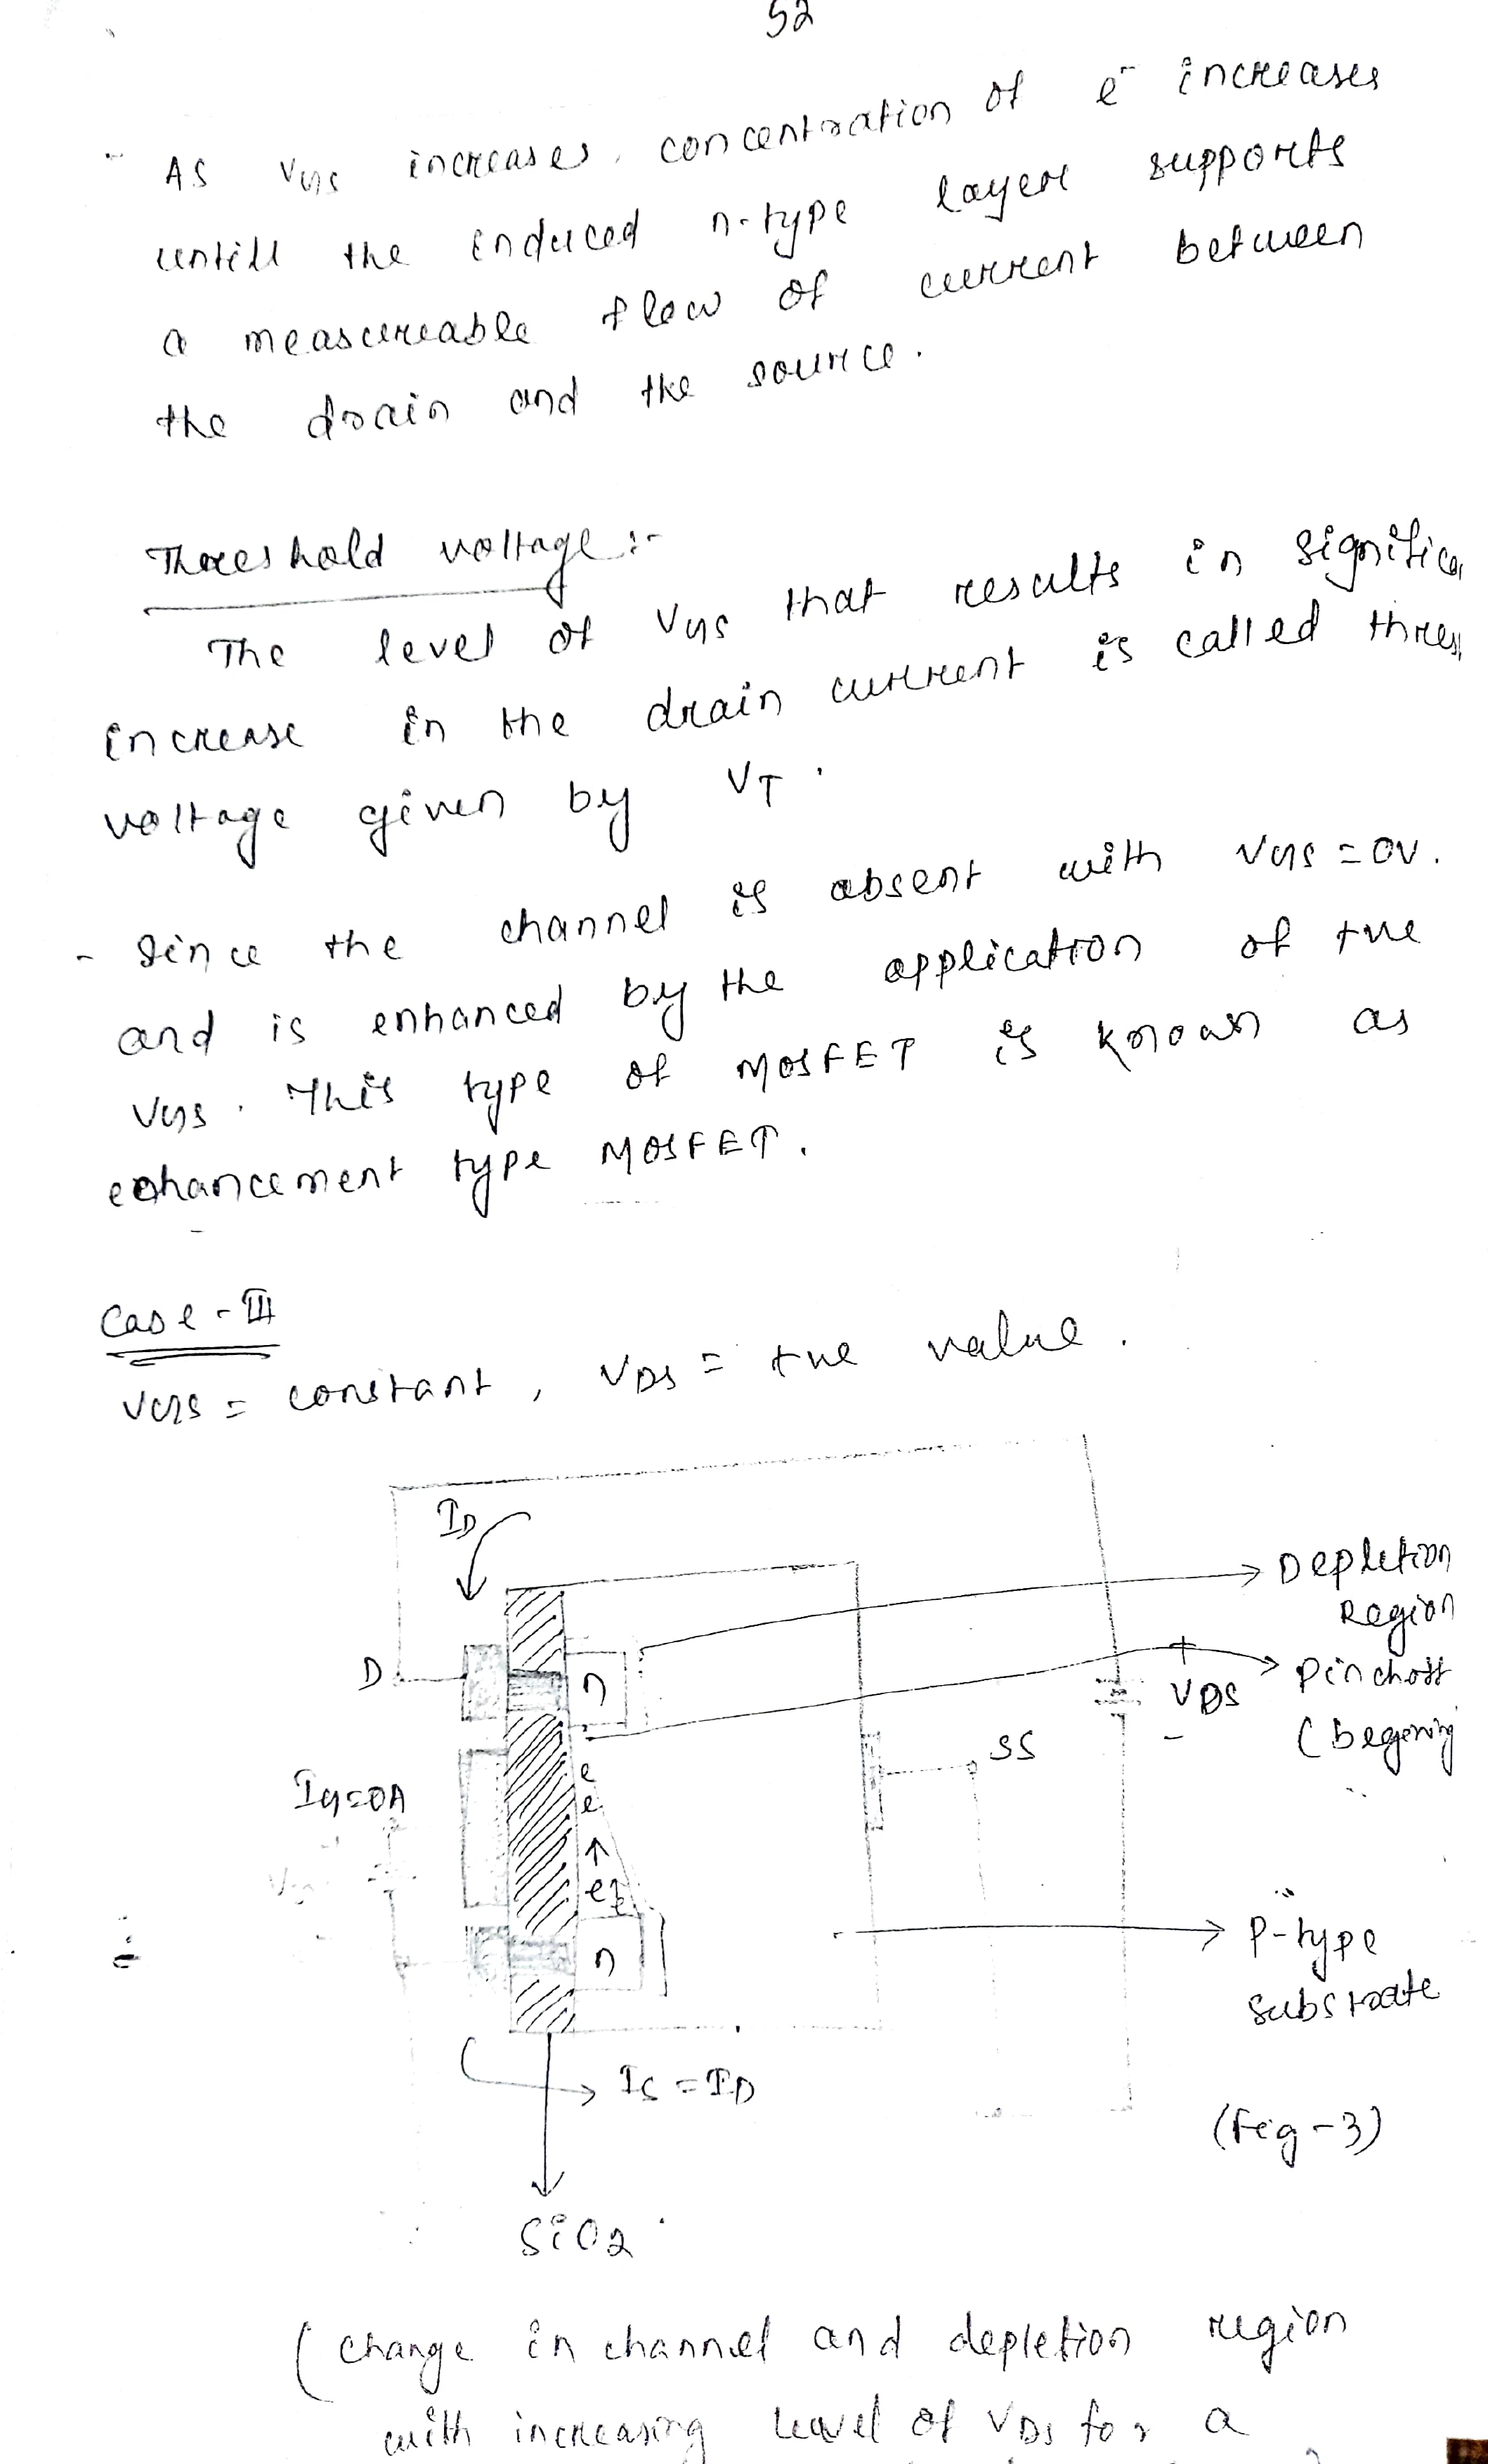 52
- As VGS increases, concentration of e⁻ increases
untill the induced n-type layer supports
a measureable flow of current between
the drain and the source.
Threshold voltage :-
The level of VGS that results in significa
increase in the drain current is called thres
voltage given by VT.
- Since the channel is absent with VGS = 0V.
and is enhanced by the application of +ve
VGS. This type of MOSFET is known as
enhancement type MOSFET.
Case - III
VGS = constant, VDS = +ve value.
ID
Depletion
Region
D
n
+
Pinchoff
VDS
(begening
-
SS
IG=0A
e
e
e
n
P-type
Substrate
IS = ID
(Fig-3)
SiO2
(Change in channel and depletion region
with increasing level of VDS for a